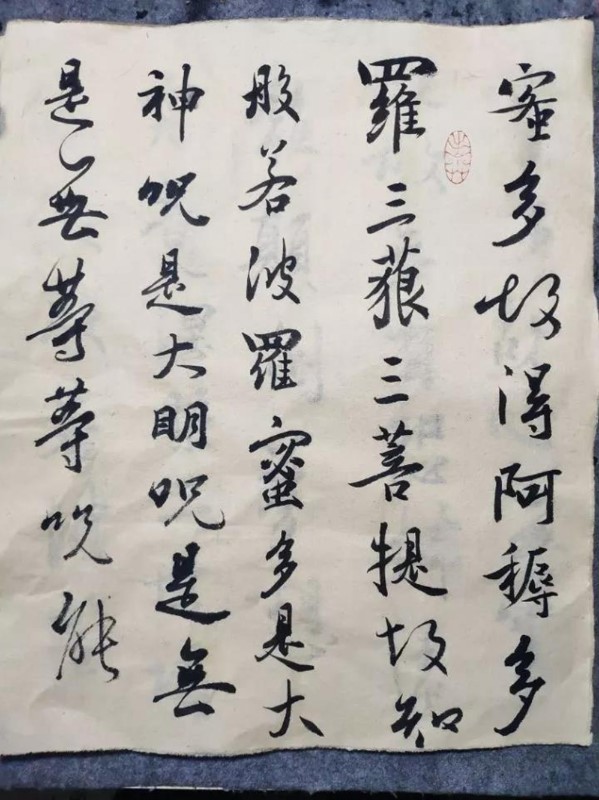 蜜多故得阿耨多
羅三藐三菩提故知
般若波羅蜜多是大
神呪是大明呪是無
是無等等呪能